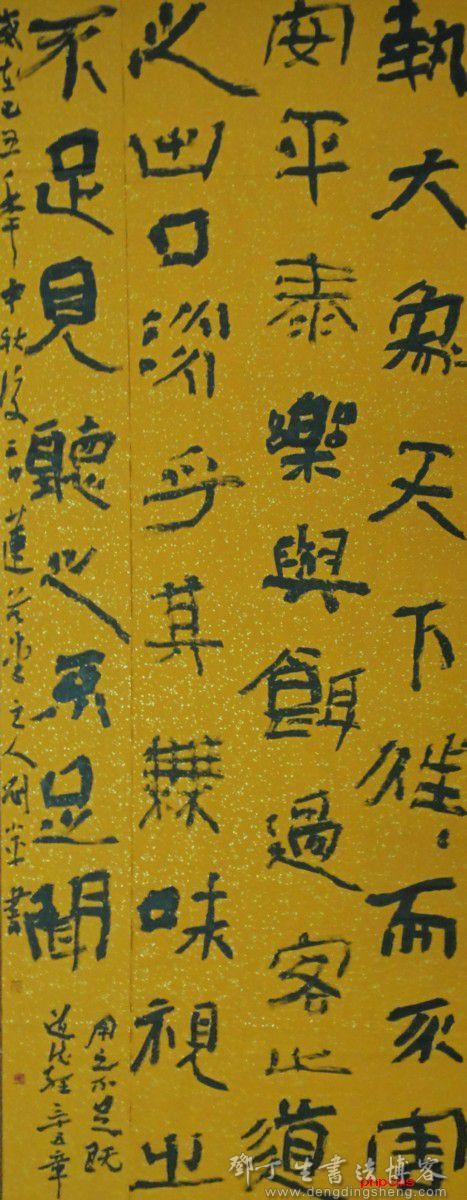 執大象天下往〻而不害
安平泰樂與餌過客止道
之出口淡乎其無味視之
不足見聽之不足聞
用之不足既
道德經三十五章
歲在己丑 中秋後 蓮 堂主人 書
鄧丁生書法博客
www.dengdingsheng.com